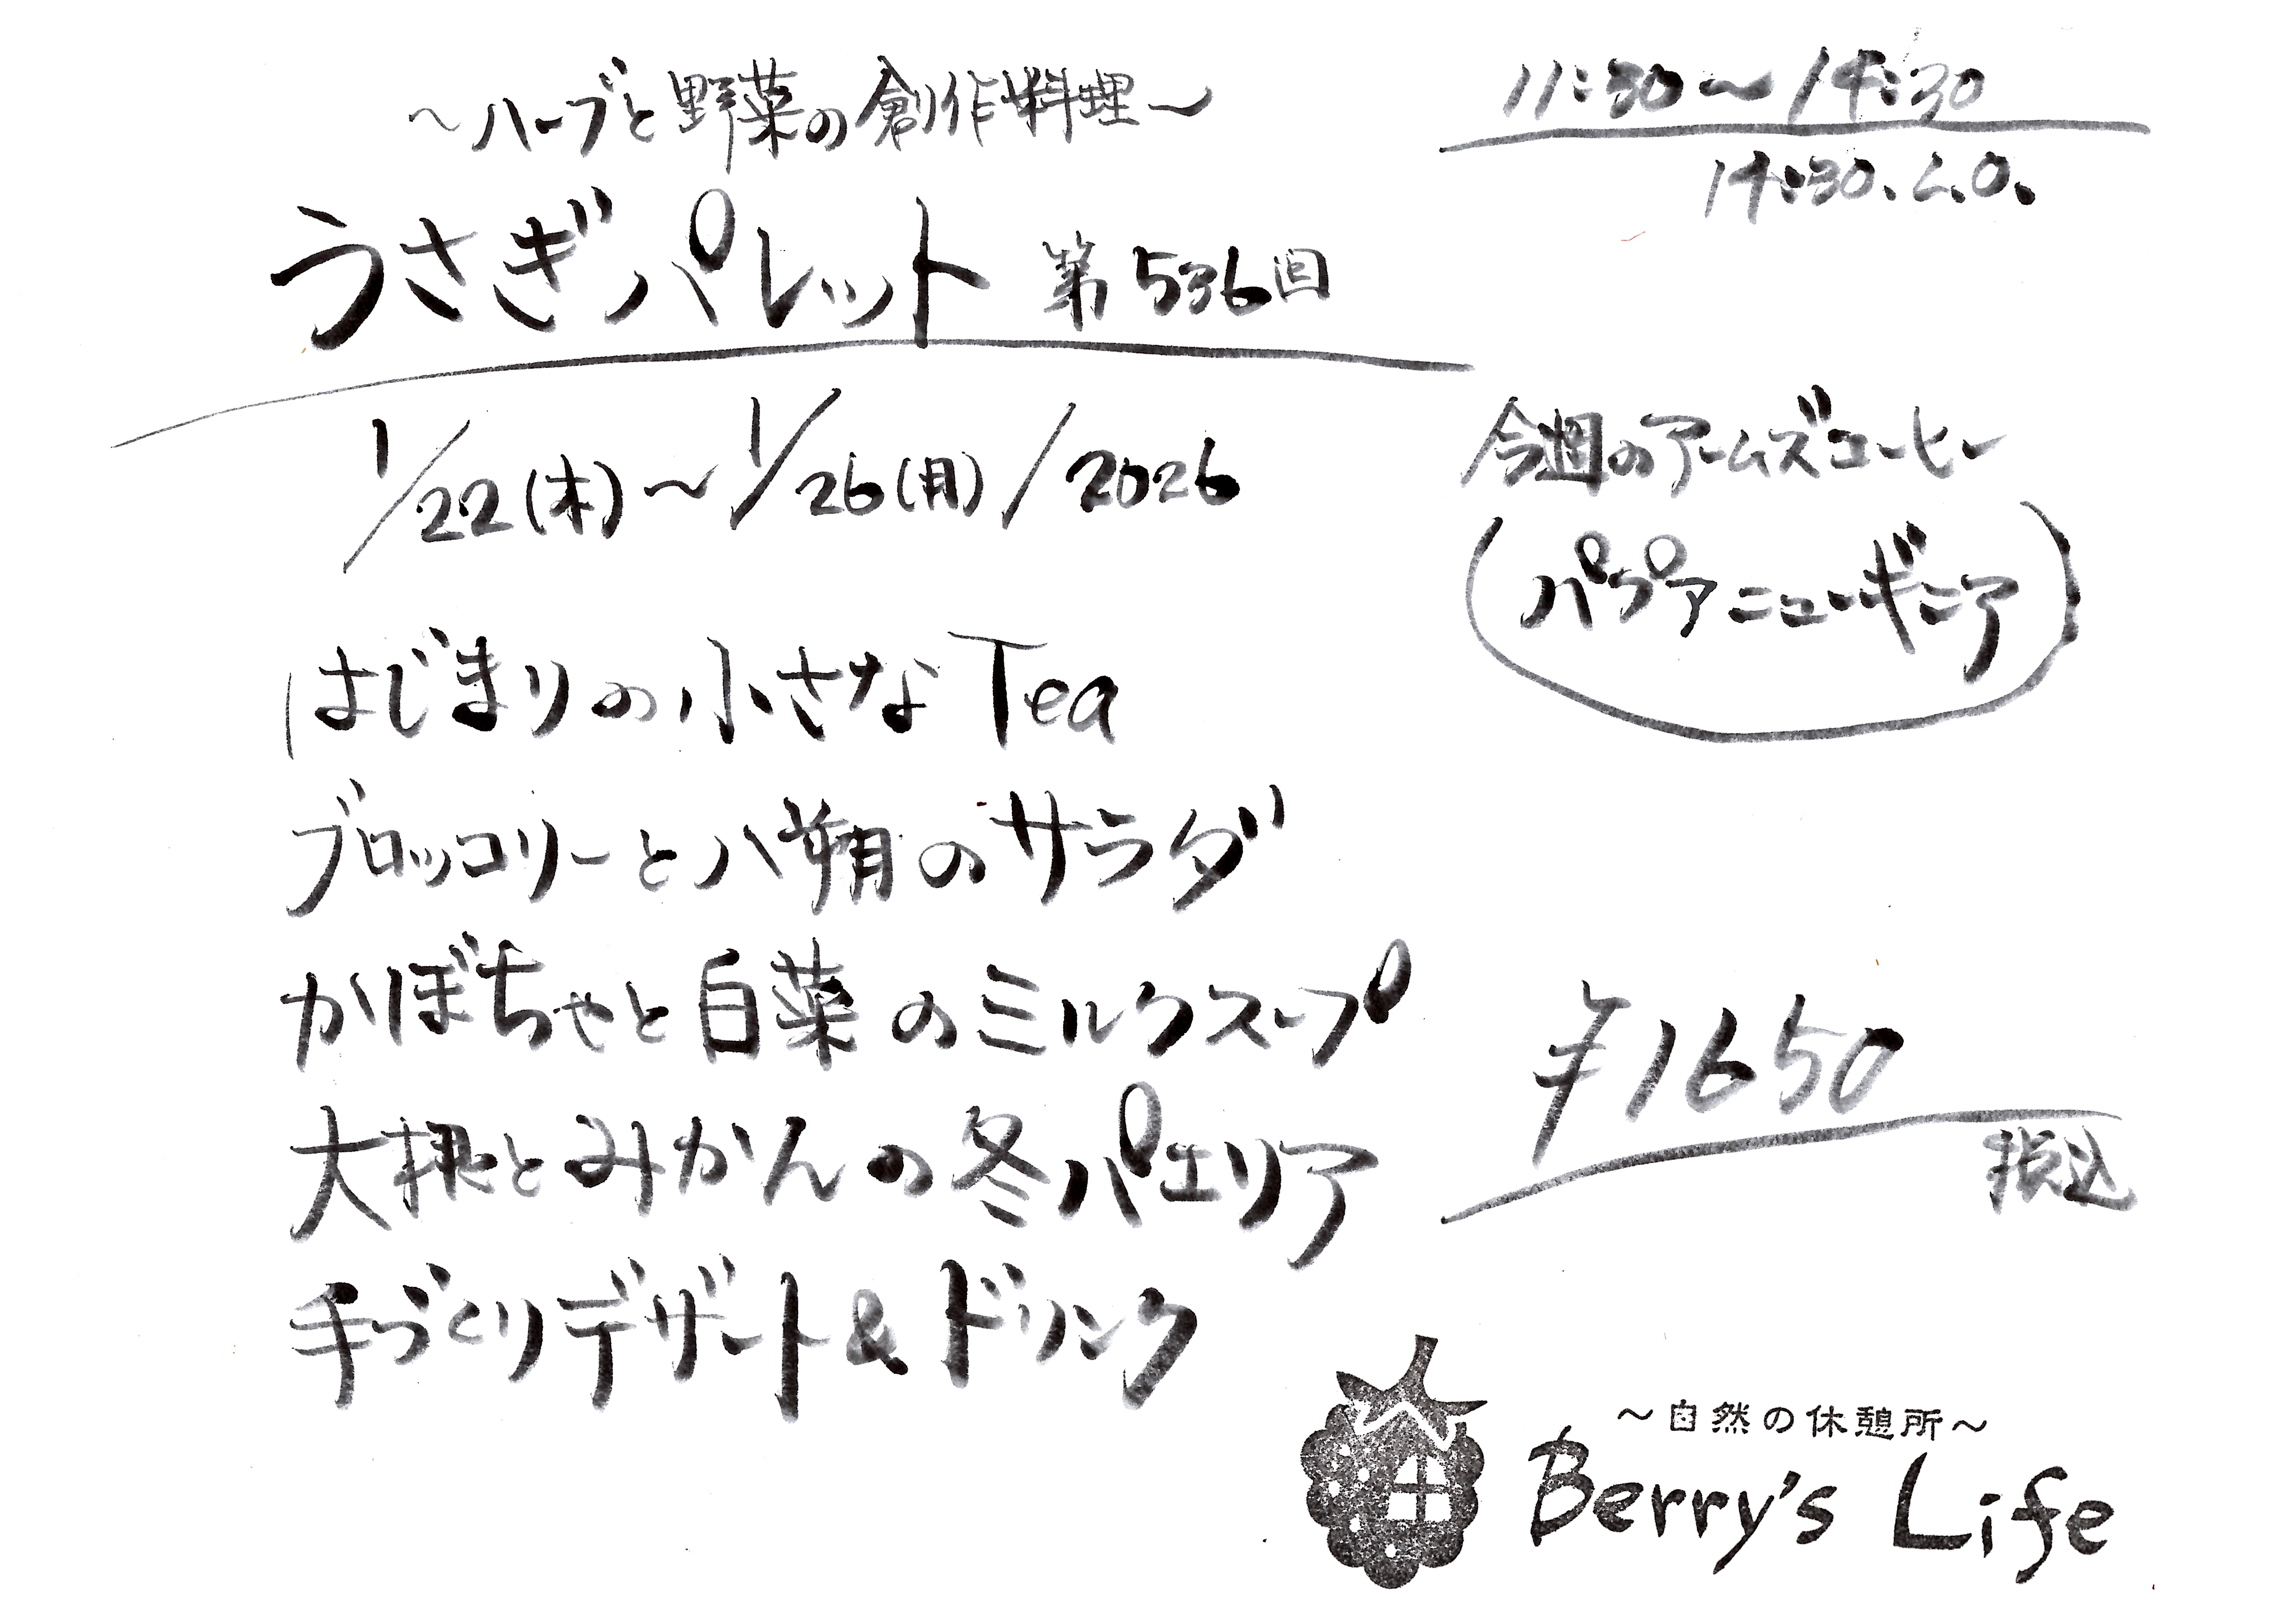 ～ハーブと野菜の創作料理～
うさぎパレット 第536回
11:30～14:30
14:30.L.O.
1/22(木)～1/26(月)/2026
今週のアームズコーヒー
(パプアニューギニア)
はじまりの小さなTea
ブロッコリーと八朔のサラダ
かぼちゃと白菜のミルクスープ
大根とみかんの冬パエリア
手づくりデザート&ドリンク
¥1650
税込
～自然の休憩所～
Berry's Life